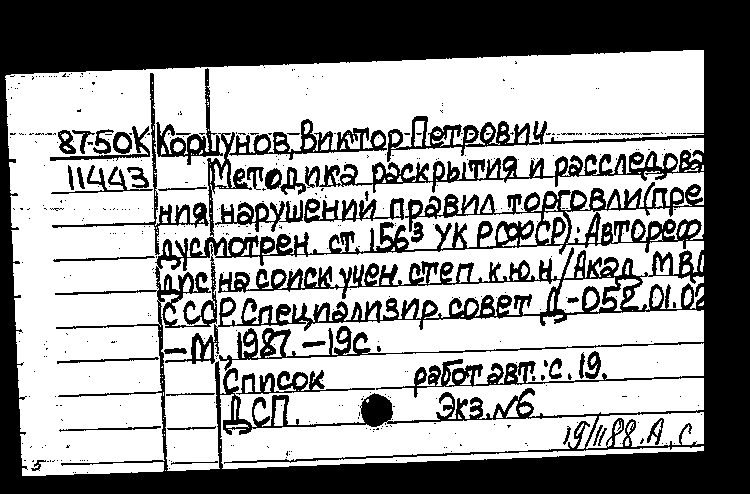 87-50К Коршунов, Виктор Петрович.
11443 Методика раскрытия и расследова
ния нарушений правил торговли (пре
дусмотрен. ст. 156³ УК РСФСР): Автореф.
дис на соиск. учен. степ. к.ю.н. / Акад. МВД
СССР. Специализир. совет Д-052.01.02
— М., 1987. — 19с.
Список работ авт.: с. 19.
ДСП. Экз. №6.
19/II 88. А, С.
5